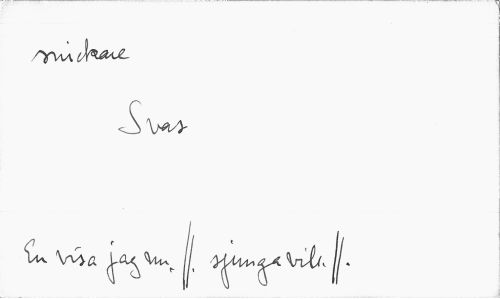 snickare
Svas
En visa jag nu. //. sjunga vill. //.